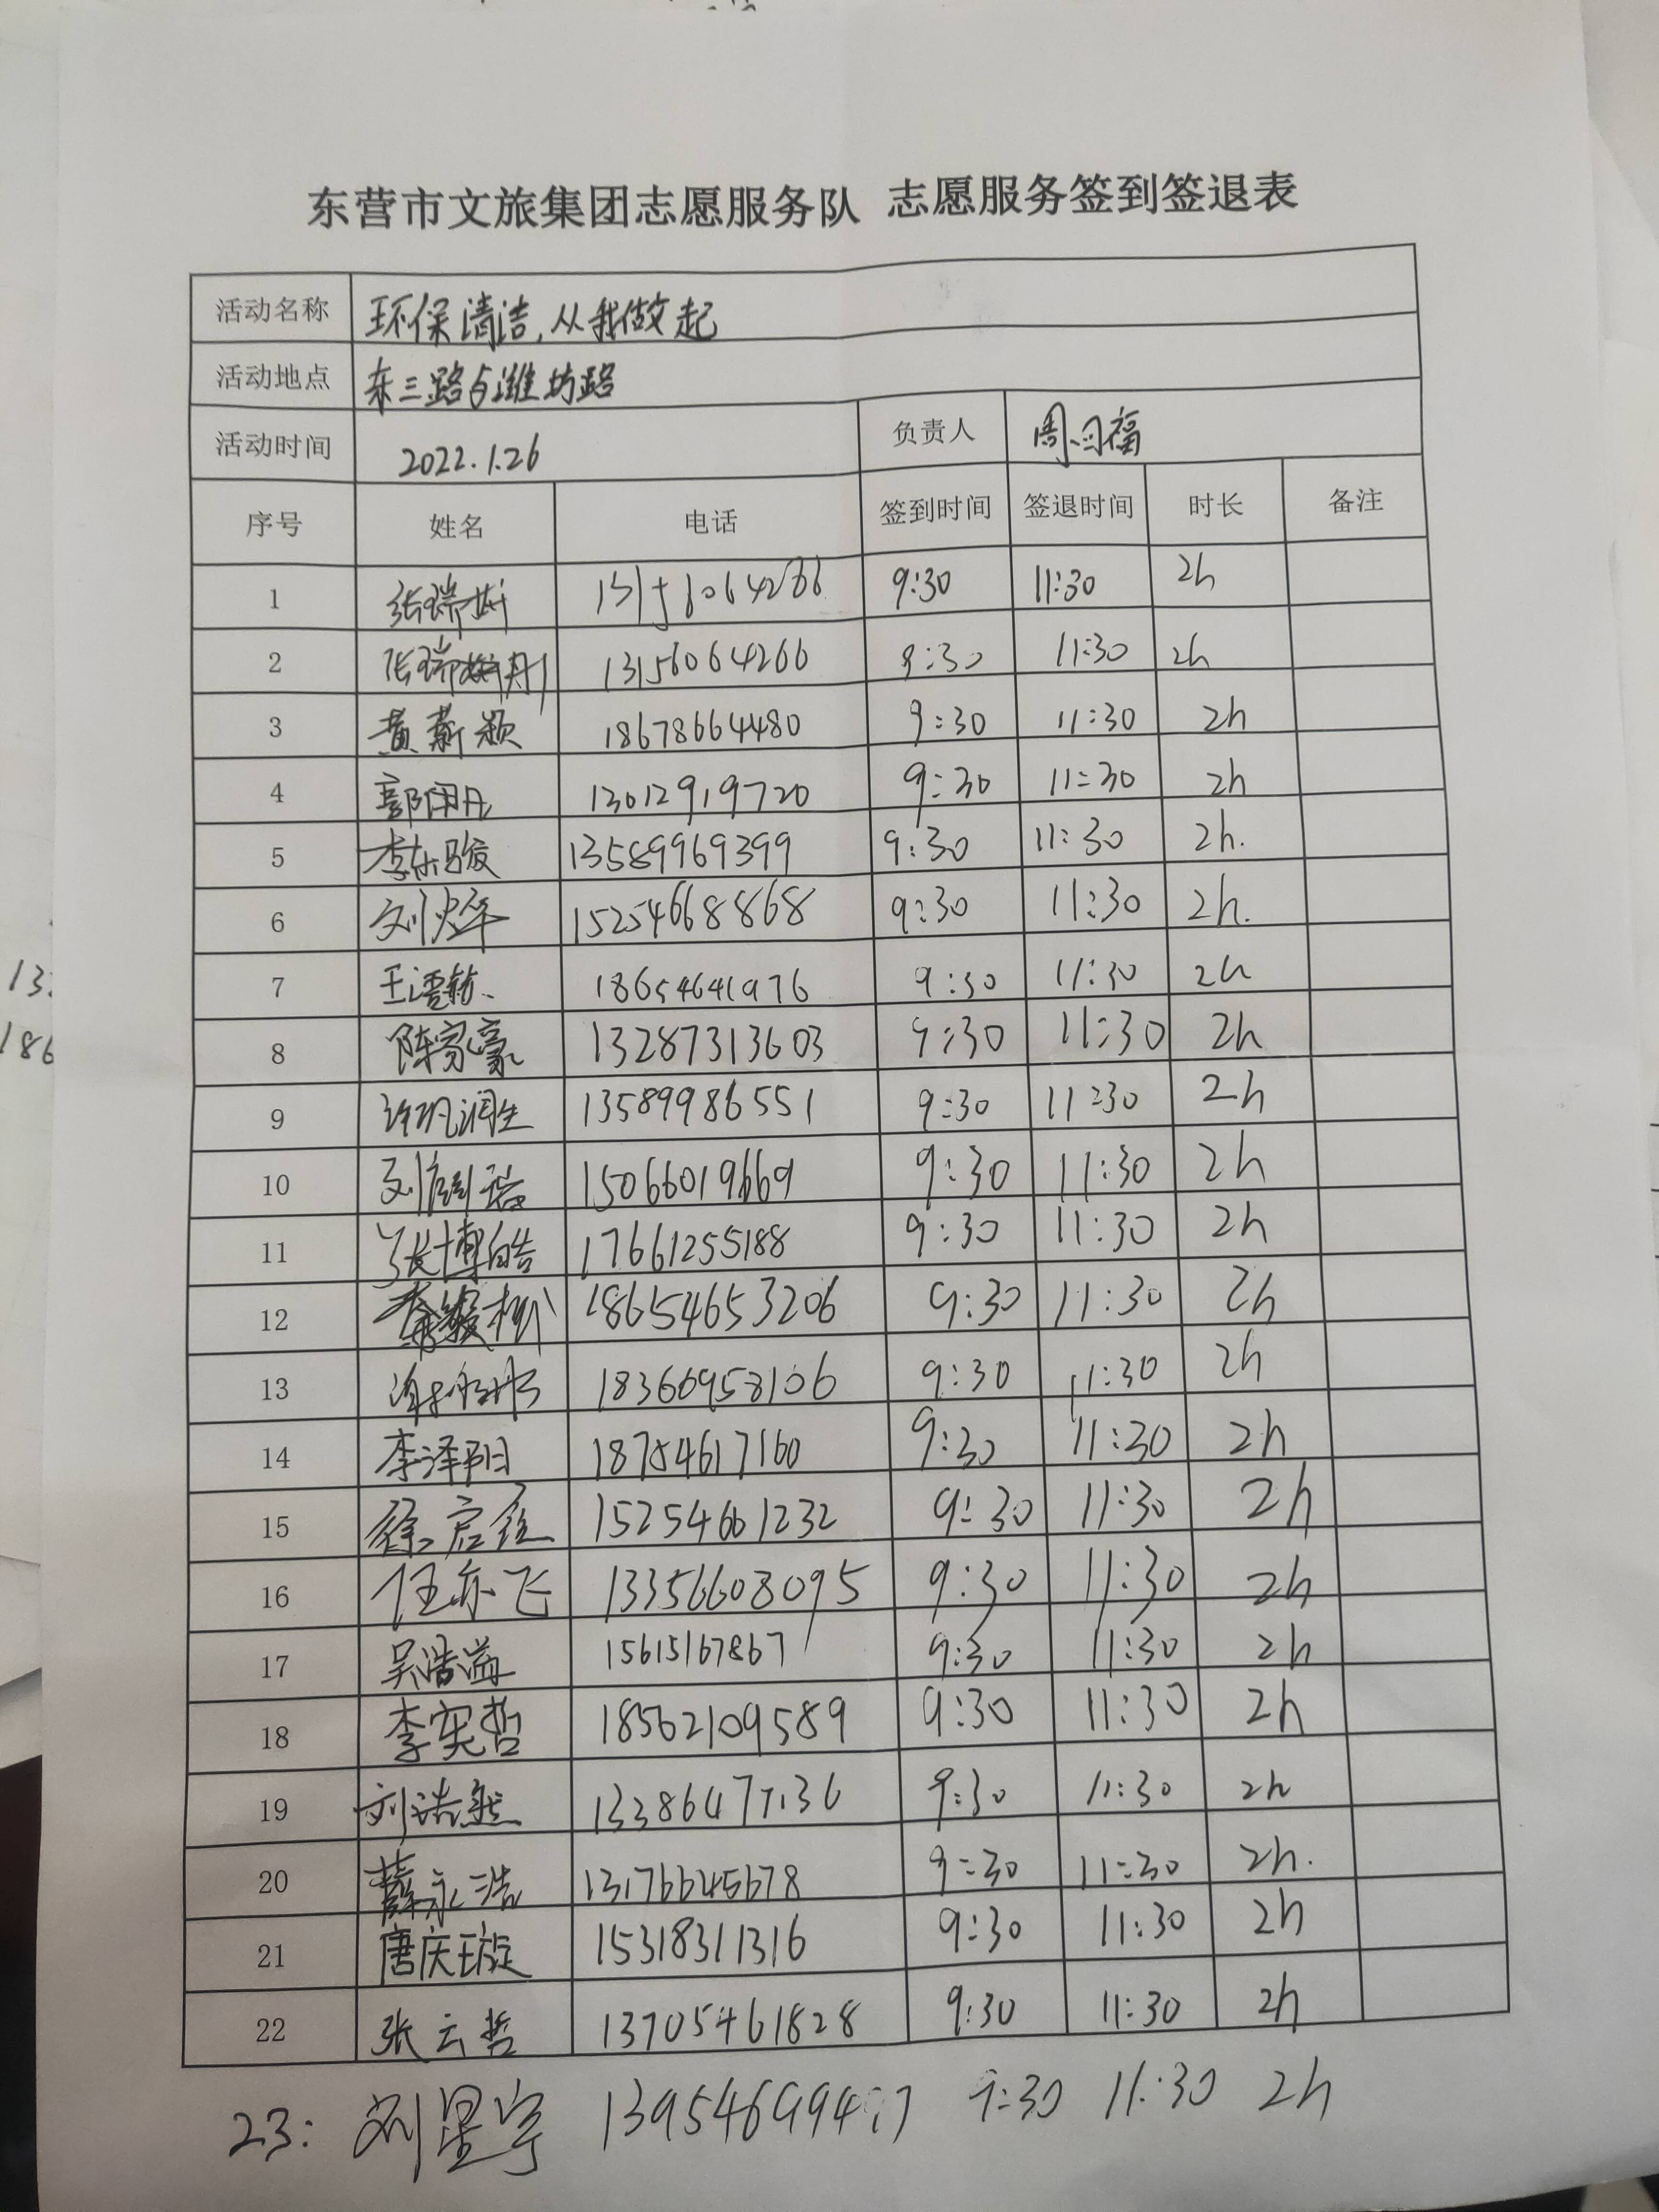 东营市文旅集团志愿服务队 志愿服务签到签退表
活动名称 环保清洁,从我做起
活动地点 东三路与潍坊路
活动时间 2022.1.26 负责人 周福
序号 姓名 电话 签到时间 签退时间 时长 备注
1 张瑞 9:30 11:30 2h
2 张瑞 13156064266 9:30 11:30 2h
3 黄薪颖 18678664480 9:30 11:30 2h
4 郭雨凡 13012919720 9:30 11:30 2h
5 李东骏 13589969399 9:30 11:30 2h.
6 刘烨 15254668868 9:30 11:30 2h.
7 王 18654641976 9:30 11:30 2h
8 陈家豪 13287313603 9:30 11:30 2h
9 许润生 13589986551 9:30 11:30 2h
10 刘 15066019669 9:30 11:30 2h
11 张博皓 17661255188 9:30 11:30 2h
12 18654653206 9:30 11:30 2h
13 18366958106 9:30 11:30 2h
14 李泽阳 18754617160 9:30 11:30 2h
15 徐启 15254661232 9:30 11:30 2h
16 任亦飞 13356608095 9:30 11:30 2h
17 吴浩溢 15615167867 9:30 11:30 2h
18 李宪哲 18562109589 9:30 11:30 2h
19 刘浩然 9:30 11:30 2h
20 薛永浩 13176645678 9:30 11:30 2h.
21 唐庆璇 15318311316 9:30 11:30 2h
22 张云哲 13705461828 9:30 11:30 2h
23: 刘星宇 9:30 11:30 2h